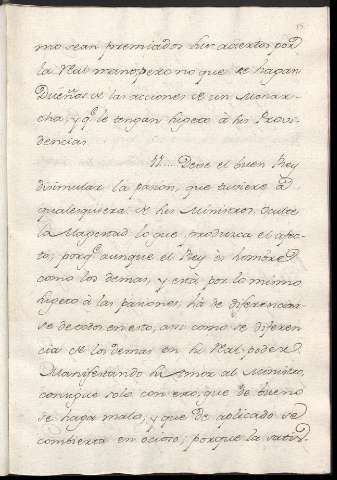 mo sean premiados sus aciertos por
la Real mano, pero no que se hagan
Dueños de las acciones de un Monar-
cha, y qe. le tengan sugeto à sus Provi-
dencias.
17.... Deve el buen Rey
disimular la pasion, que tuviere à
qualesquiera de sus Ministros. Oculte
la Magestad lo que produzca el afec-
to, porqe. aunque el Rey es hombre
como los demas, y está por lo mismo
sugeto à las pasiones, há de diferenciar-
se de todos en esto, asi como se diferen
cia de los demas en su Real poder.
Manifestando su Amor al Ministro,
consigue solo con eso, que de bueno
se haga malo, y que de aplicado se
combierta en ocioso; porque la satis